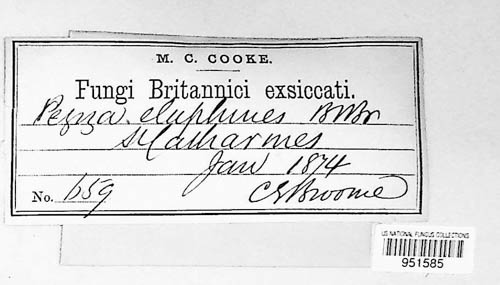 M. C. COOKE.
Fungi Britannici exsiccati.
Peziza elaphines B&Br
St Catharines
Jan 1874
No. 659
C E Broome
US NATIONAL FUNGUS COLLECTIONS
951585